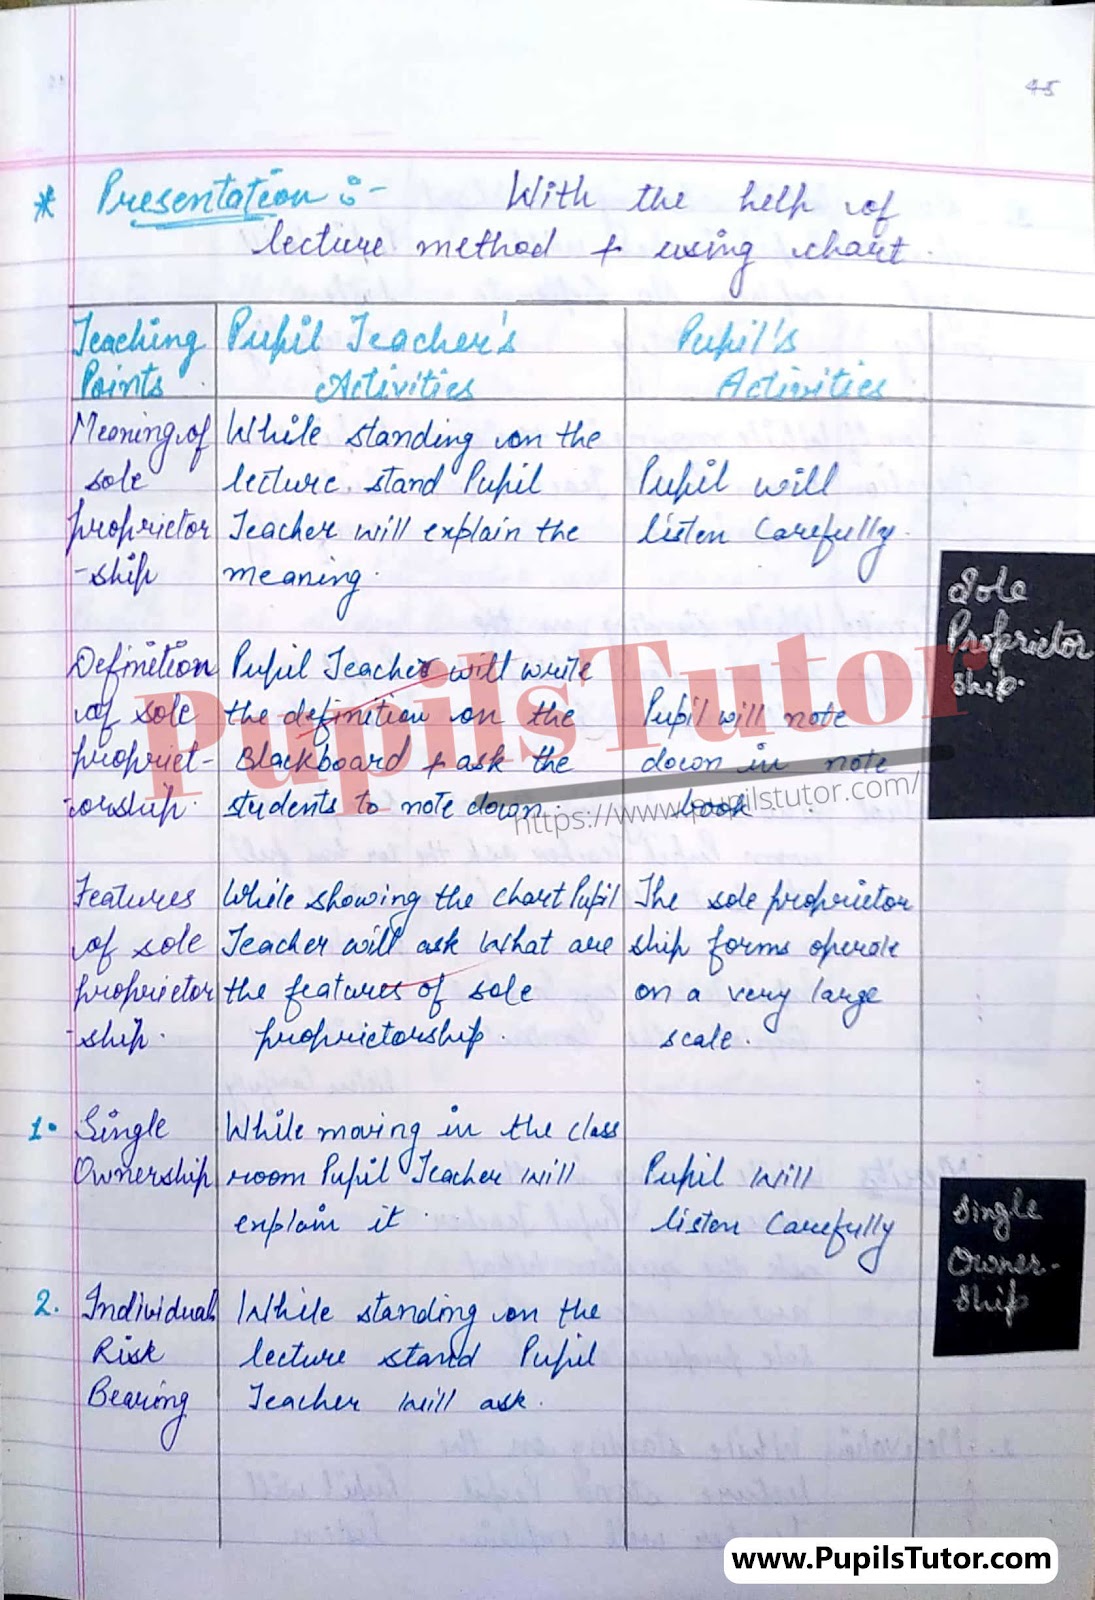 45
* Presentation :- With the help of
lecture method + using chart.
Teaching Points
Pupil Teacher's Activities
Pupil's Activities
Meaning of
sole
proprietor
-ship
While standing on the
lecture stand Pupil
Teacher will explain the
meaning.
Pupil will
listen Carefully.
Sole
Proprietor
ship.
Definition
of sole
propriet-
-orship.
Pupil Teacher will write
the definition on the
Blackboard + ask the
students to note down.
Pupil will note
down in note
book
PupilsTutor
https://www.pupilstutor.com/
Features
of sole
proprietor
-ship.
While showing the chart Pupil
Teacher will ask What are
the features of sole
proprietorship.
The sole proprietor
ship forms operate
on a very large
scale.
1. Single
Ownership
While moving in the class
room Pupil Teacher will
explain it.
Pupil will
listen Carefully
Single
Owner-
ship
2. Individual
Risk
Bearing
While standing on the
lecture stand Pupil
Teacher will ask.
www.PupilsTutor.com